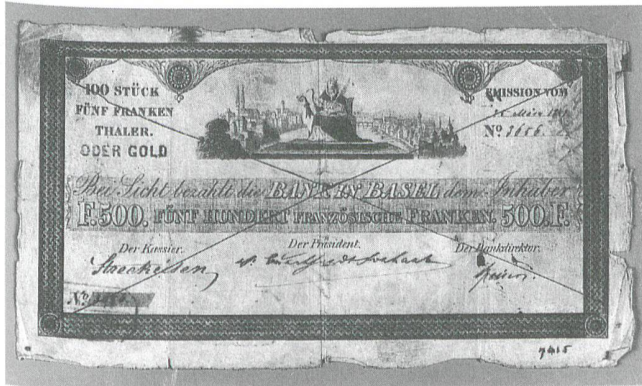 100 STÜCK
FÜNF FRANKEN
THALER.
ODER GOLD
EMISSION VOM
Nº 3656.
Bei Sicht bezahlt die BANK IN BASEL dem Inhaber
F.500. FÜNF HUNDERT FRANZÖSISCHE FRANKEN. 500.F.
Der Kassier. Der Präsident. Der Bankdirektor.
Streckeisen
Nº
7415